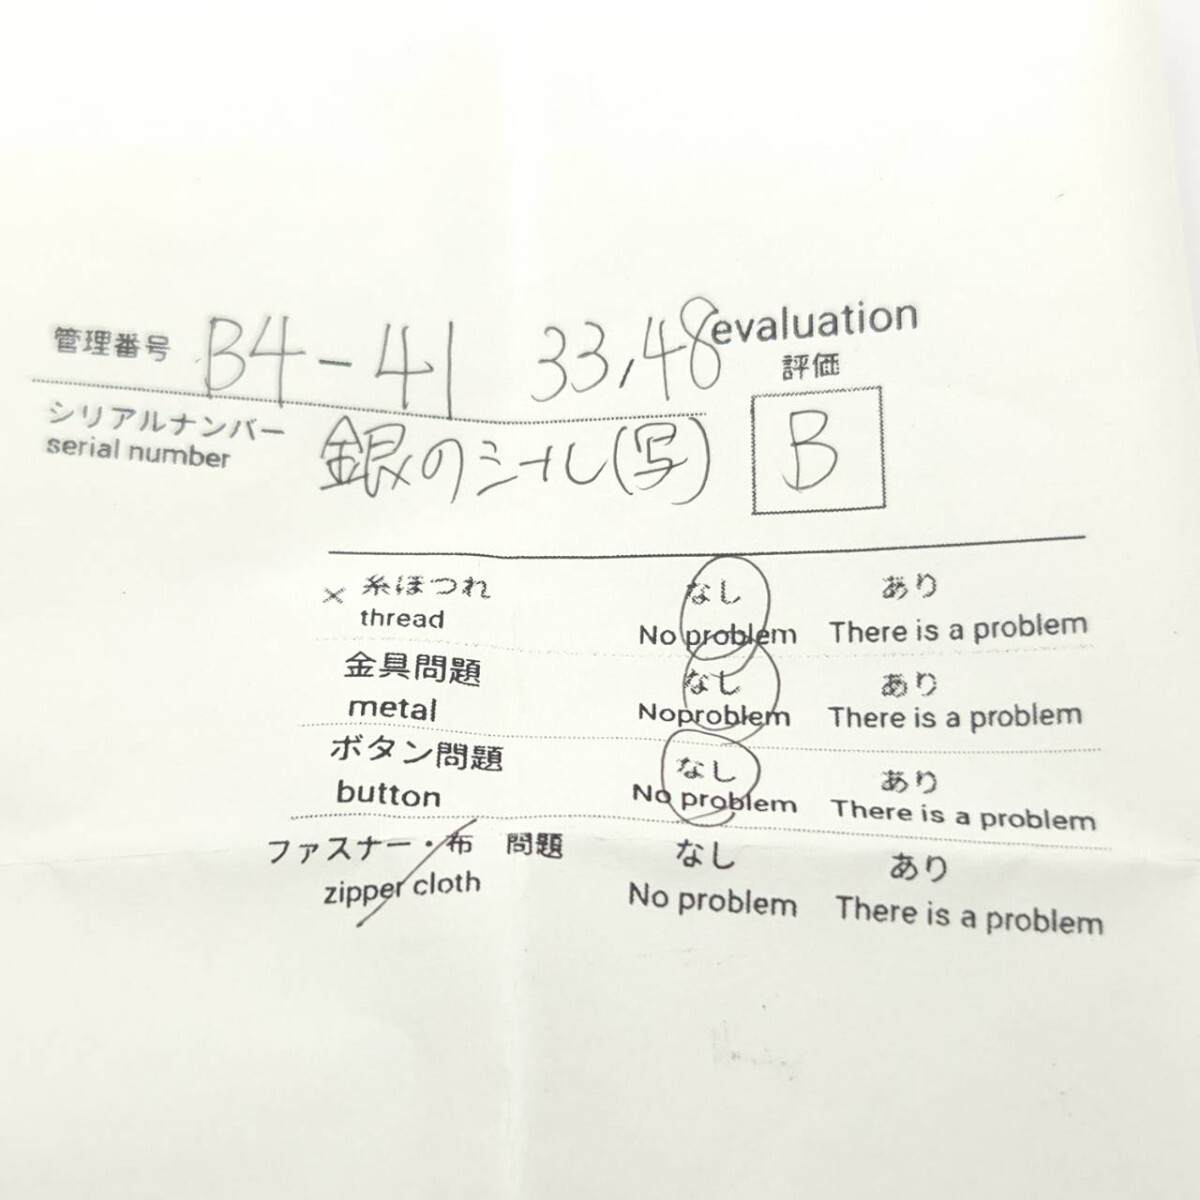 管理番号 B4-41 33,48 evaluation
評価
シリアルナンバー
serial number 銀のシール(写) B
× 糸ほつれ なし あり
thread No problem There is a problem
金具問題 なし あり
metal Noproblem There is a problem
ボタン問題 なし あり
button No problem There is a problem
ファスナー・布 問題 なし あり
zipper cloth No problem There is a problem